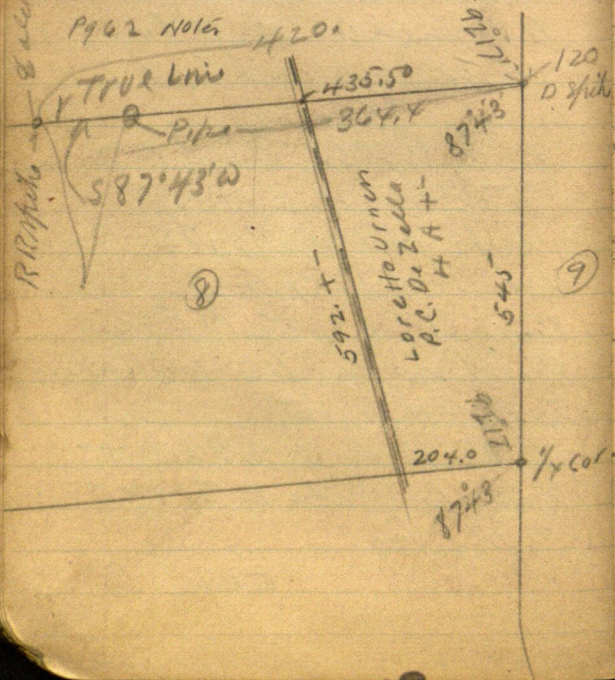 Pg 62 Notes
420.
True Line
435.50
120
D Spik
Pipe
364.4
87°43'
S 87°43' W
RRspike
8
9
592.+-
Loretto
P.C. DeZella
H A +-
545
204.0
1/4 Cor.
87°43